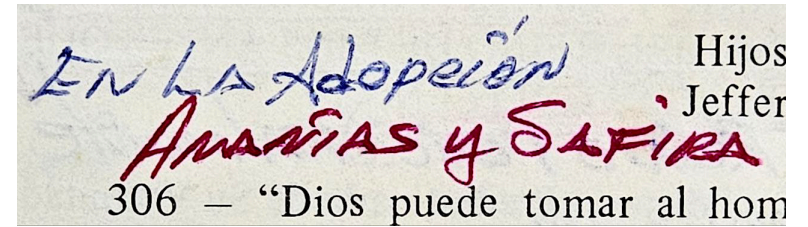 EN LA Adopción
Hijos
Jeffer
ANANÍAS y SAFIRA
306 – “Dios puede tomar al hom